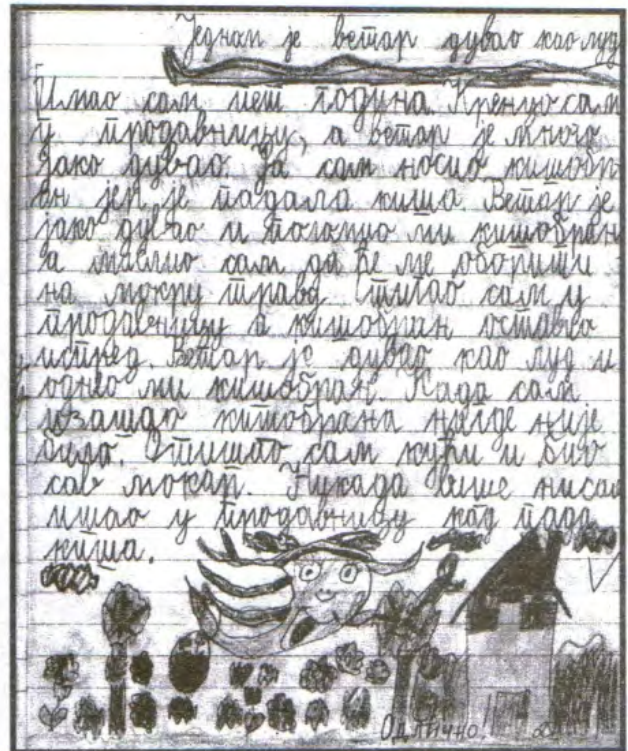 Једном је ветар дувао као луд
Имао сам пет година. Кренуо сам
у продавницу, а ветар је много
јако дувао. Ја сам носио кишобр
ан јер је падала киша. Ветар је
јако дувао и ми кишобран
а мислио сам да ће ме оборити
на мокру траву. сам у
продавницу а кишобран оставио
испред. Ветар је дувао као луд и
однео ми кишобран. Када сам
изашао кишобрана нигде није
било. Отишао сам кући и био
сав мокар. Никада више нисам
ишао у продавницу кад пада
киша.
Одлично!